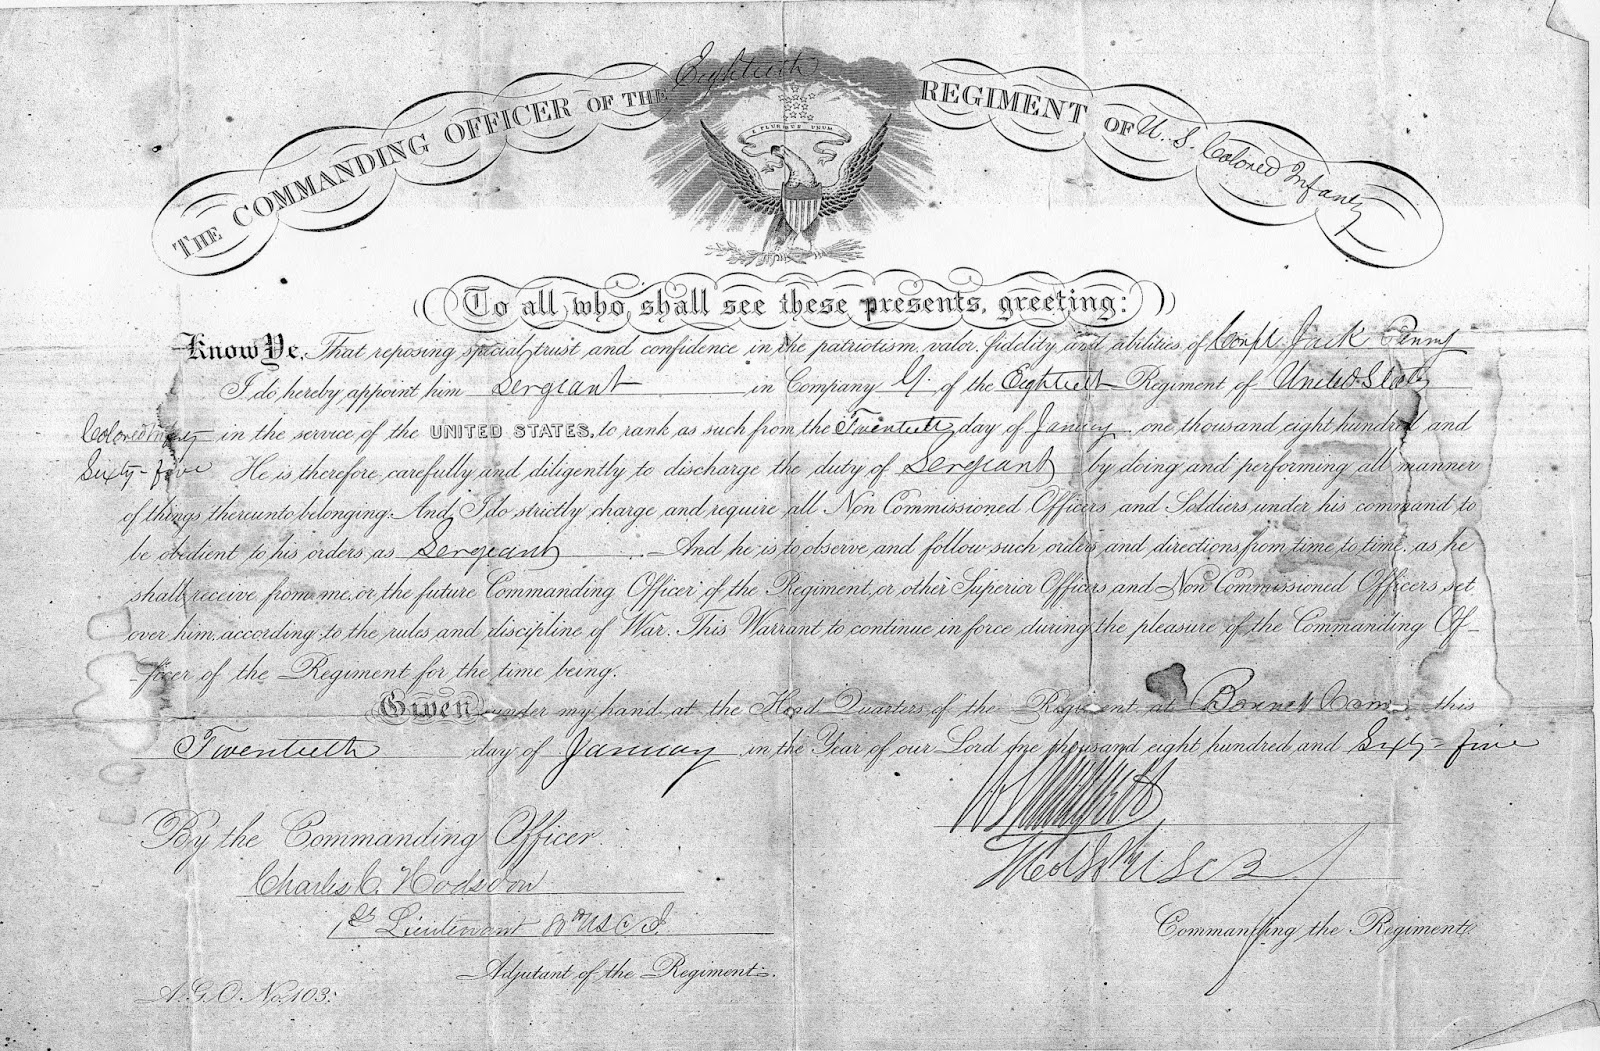 THE COMMANDING OFFICER OF THE Eightieth REGIMENT OF U. S. Colored Infantry
E PLURIBUS UNUM
To all who shall see these presents, greeting:
Know Ye, That reposing special trust and confidence in the patriotism, valor, fidelity and abilities of Corpl Jack Penny
I do hereby appoint him Sergeant in Company G. of the Eightieth Regiment of United States
Colored Infantry in the service of the UNITED STATES, to rank as such from the Twentieth day of January one thousand eight hundred and
Sixty-five He is therefore carefully and diligently to discharge the duty of Sergeant by doing and performing all manner
of things thereunto belonging. And I do strictly charge and require all Non Commissioned Officers and Soldiers under his command to
be obedient to his orders as Sergeant And he is to observe and follow such orders and directions from time to time, as he
shall receive from me, or the future Commanding Officer of the Regiment, or other Superior Officers and Non Commissioned Officers set
over him, according to the rules and discipline of War. This Warrant to continue in force during the pleasure of the Commanding Of-
-ficer of the Regiment for the time being.
Given under my hand at the Head Quarters of the Regiment at this
Twentieth day of January in the Year of our Lord one thousand eight hundred and Sixty-five
By the Commanding Officer.
Charles C. Hodsdon
1st Lieutenant USCI.
Commanding the Regiment.
Adjutant of the Regiment.
A.G.O. No. 103.